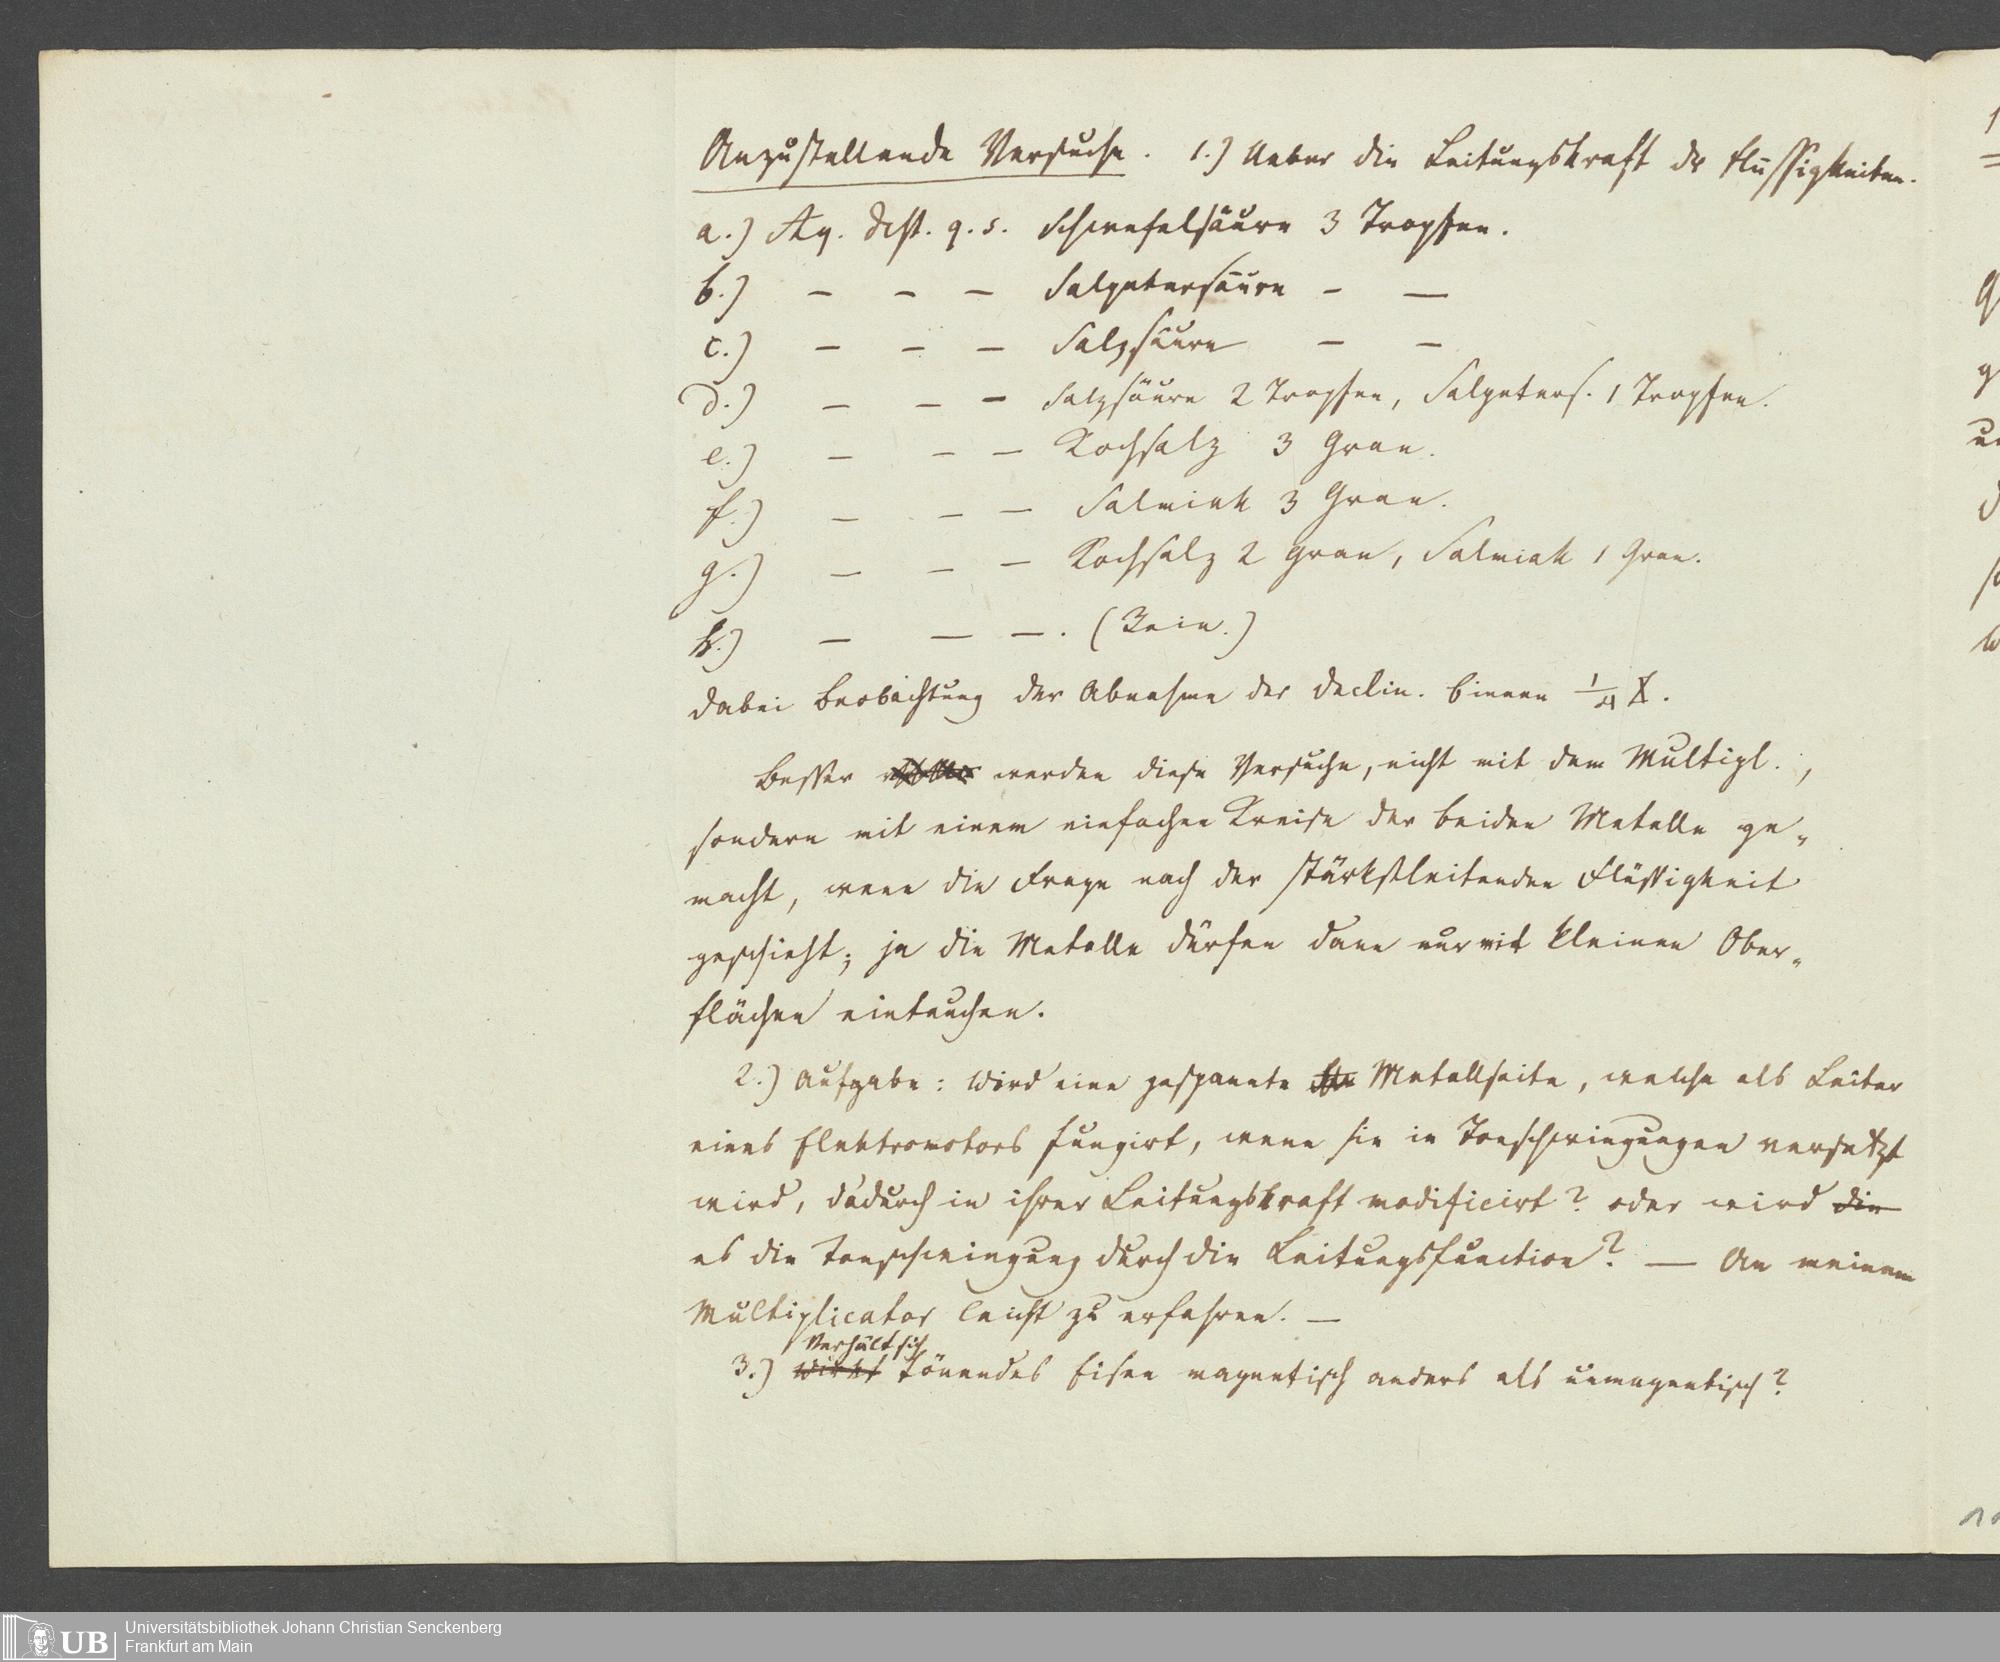 Anzustellende Versuche. 1.) Ueber die Leitungskraft der Flüssigkeiten.
a.) Aq. dest. q. s. Schwefelsäure 3 Tropfen.
b.) — — — Salpetersäure — —
c.) — — — Salzsäure — —
d.) — — — Salzsäure 2 Tropfen, Salpeters. 1 Tropfen.
e.) — — — Kochsalz 3 Gran.
f.) — — — Salmiak 3 Gran.
g.) — — — Kochsalz 2 Gran, Salmiak 1 Gran.
h.) — — —. (Rein.)
Dabei Beobachtung der Abnahme der Declin. binnen 1/4
Besser werden diese Versuche, nicht mit dem Multipl.,
sondern mit einem einfachen Kreise der beiden Metalle ge-
macht, wenn die Frage nach der stärkstleitenden Flüssigkeit
geschieht; ja die Metalle dürfen dann nur mit kleinen Ober-
flächen eintauchen.
2.) Aufgabe: Wird eine gespannte Metallseite, welche als Leiter
eines Elektromotors fungirt, wenn sie in Tonschwingungen versetzt
wird, dadurch in ihrer Leitungskraft modificirt? oder wird die
es die Tonschwingung durch die Leitungsfunction? — An meinem
Multiplicator leicht zu erfahren. —
Verhält sich
3.) Wirkt tönendes Eisen magnetisch anders als unmagnetisch?
UB
Universitätsbibliothek Johann Christian Senckenberg
Frankfurt am Main